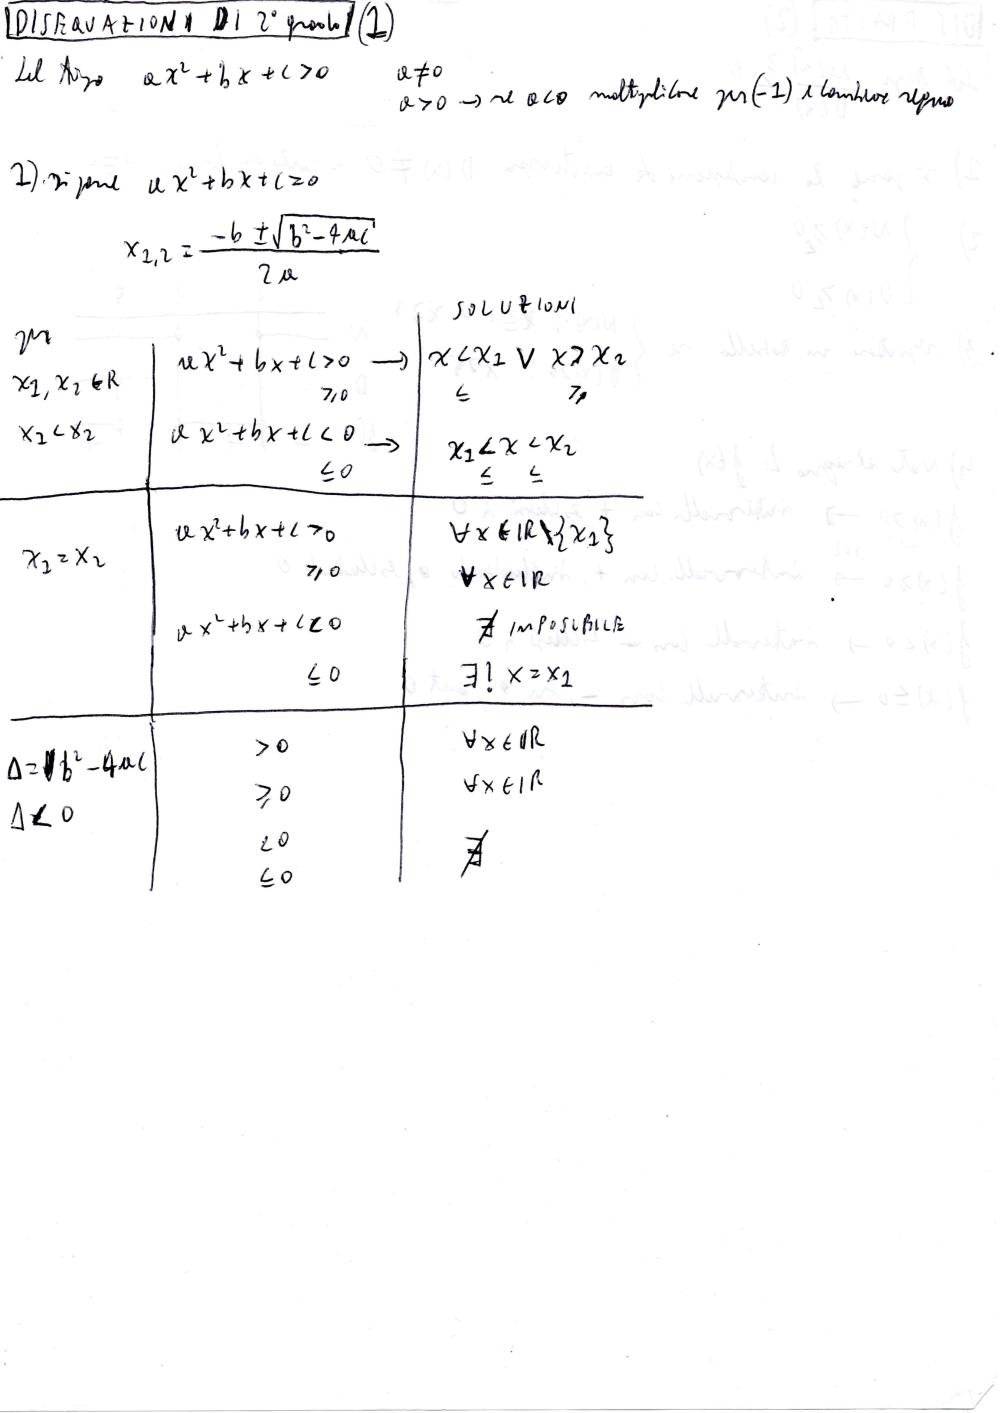 DISEQUAZIONI DI 2° grado (1)
del tipo ax²+bx+c>0 a≠0
a>0 → se a<0 moltiplicare per (-1) e cambiare segno
1) si pone ax²+bx+c=0
x1,2 = (-b ± √(b²-4ac)) / 2a
SOLUZIONI
per
x1, x2 ∈ R
x1 < x2
ax²+bx+c>0 → x<x1 ∨ x>x2
≥0 ≤ ≥
ax²+bx+c<0 → x1<x<x2
≤0 ≤ ≤
x1=x2
ax²+bx+c>0 ∀x∈ℝ\{x1}
≥0 ∀x∈ℝ
ax²+bx+c<0 ∄ IMPOSSIBILE
≤0 ∃! x=x1
Δ=b²-4ac >0 ∀x∈ℝ
Δ<0 ≥0 ∀x∈ℝ
<0 ∄
≤0